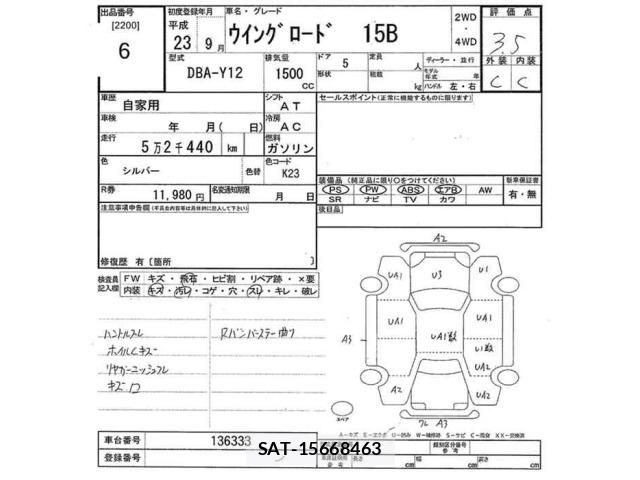 出品番号
[2200]
6
初度登録年月 車名・グレード
平成 23年 9月
ウイングロード 15B
2WD
・
4WD
評価点
3.5
外装 内装
C C
型式
DBA-Y12
排気量
1500 CC
ドア 5
形状
定員 人
積載 kg
ディーラー・並行
モデル年式 年
ハンドル 左・右
車歴 自家用
シフト AT
セールスポイント(正常に機能するものに限ります)
車検 年 月( 日)
冷房 AC
走行 5万2千440 km
燃料 ガソリン
色 シルバー 色替
色コード K23
装備品(純正品に限り○をつけてください)
新車保証書
PS PW ABS エアB AW
SR ナビ TV カワ
有・無
R券 11,980円
名変通知期限 月 日
後日品
注意事項申告欄(不具合内容等は具体的に記入して下さい)
修復歴 有〔箇所 〕
検査員記入欄
FW キズ・飛石・ヒビ割・リペア跡・×要
内装 キズ・汚レ・コゲ・穴・スレ・キレ・破レ
ハンドルスレ
ホイルCキズ
キズ
Rバンパーステー曲リ
A2
UA1 U3 U1
UA1 UA1
A3 UA1数 U1数
UA2 UA2
A2
A3
スペア
A-キズ E-エクボ U-凹み W-補修跡 S-サビ C-腐食 XX-交換済
車台番号 136333
登録番号
SAT-15668463
類別区分番号
参考
長さ cm
幅 cm
高さ cm